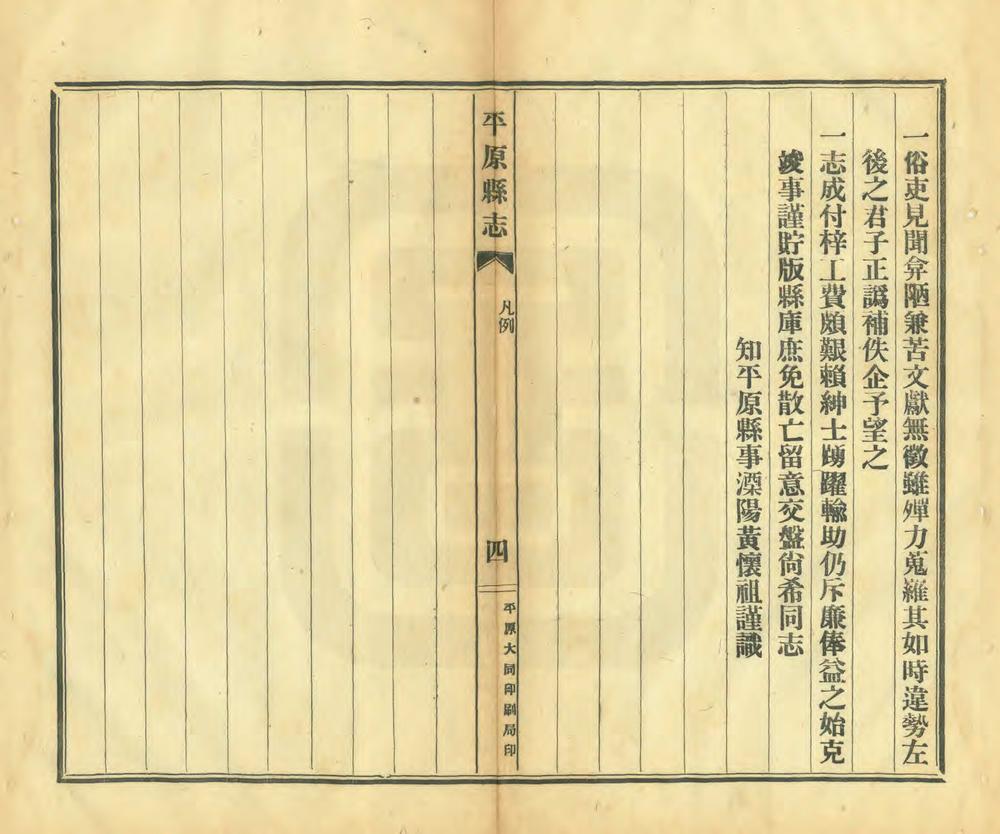 一俗吏見聞弇陋兼苦文獻無徵雖殫力蒐羅其如時違勢左
後之君子正譌補佚企予望之
一志成付梓工費頗艱賴紳士踴躍輸助仍斥廉俸益之始克
竣事謹貯版縣庫庶免散亡留意交盤尙希同志
知平原縣事溧陽黃懷祖謹識
平原縣志
凡例
四
平原大同印刷局印